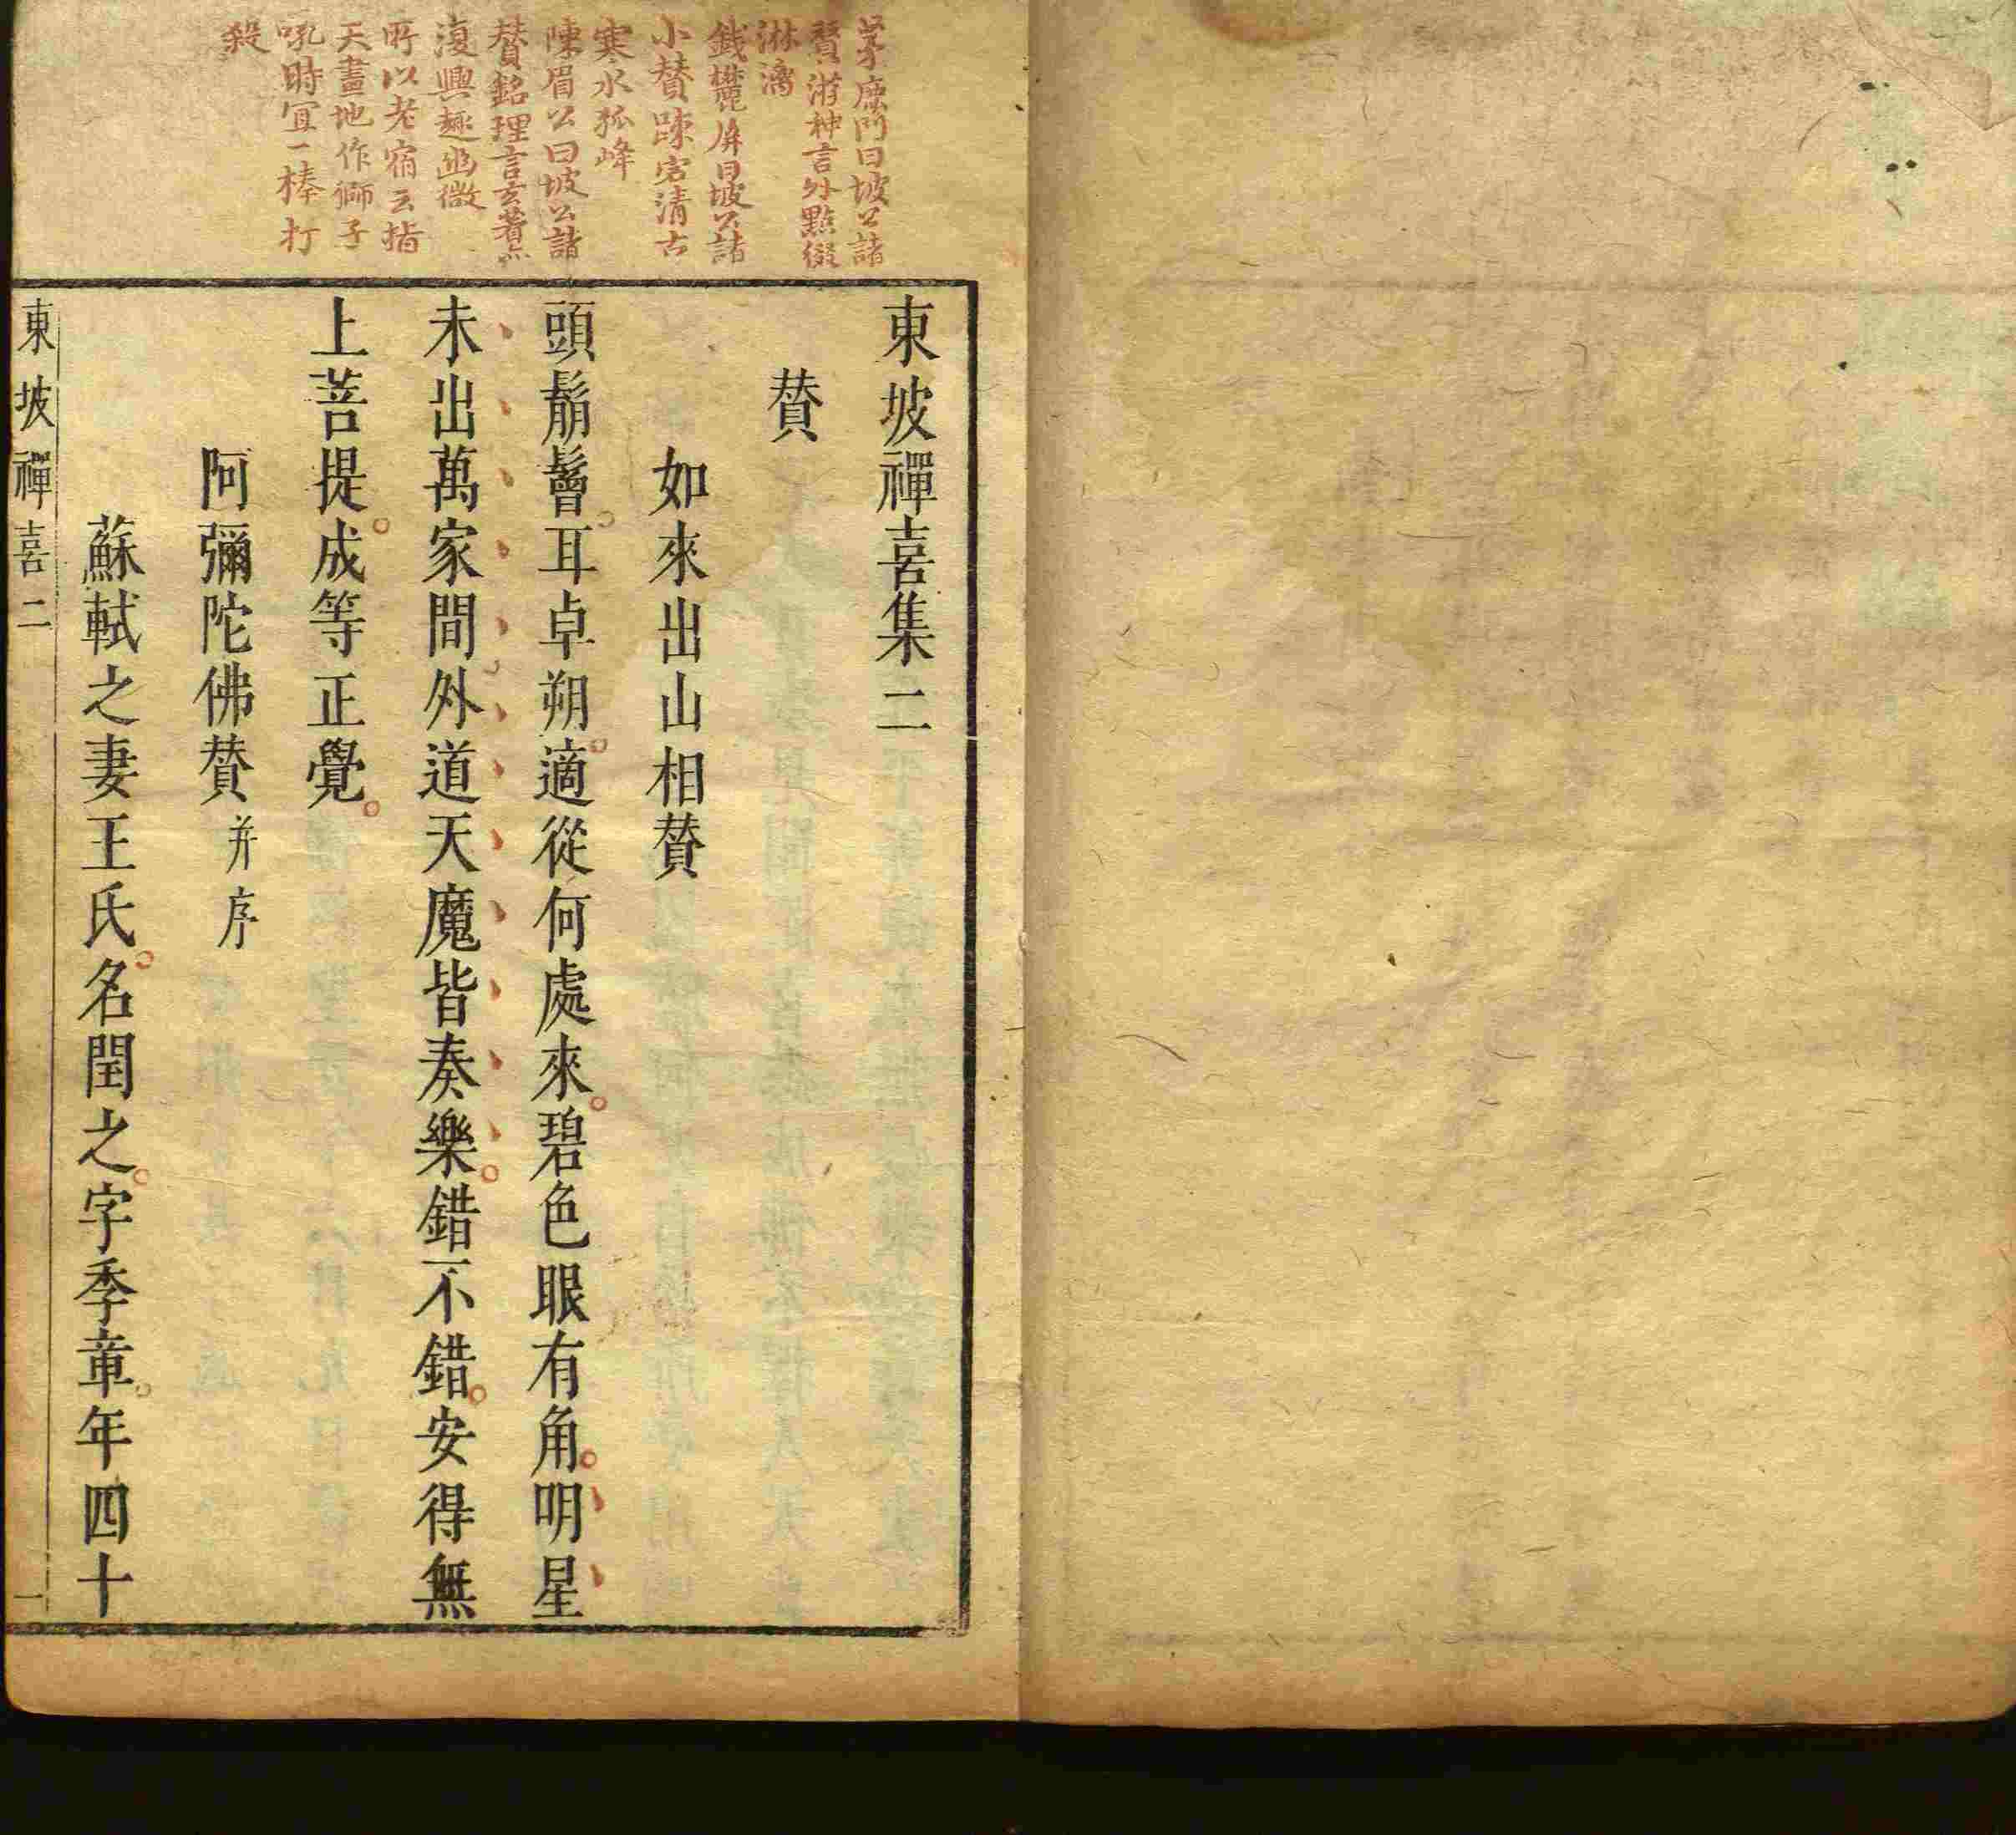 茅鹿門曰坡公諸
贊游神言外點綴
淋漓
錢麓屏曰坡公諸
小贊踈宕清古
寒水孤峰
陳眉公曰坡公諸
贊銘理言玄著
復興趣幽微
所以老宿云指
天畫地作獅子
吼時宜一棒打
殺
東坡禪喜集二
贊
如來出山相贊
頭鬅鬙耳卓朔適從何處來碧色眼有角明星
未出萬家間外道天魔皆奏樂錯不錯安得無
上菩提成等正覺
阿彌陀佛贊并序
蘇軾之妻王氏名閏之字季章年四十
東坡禪喜二
一